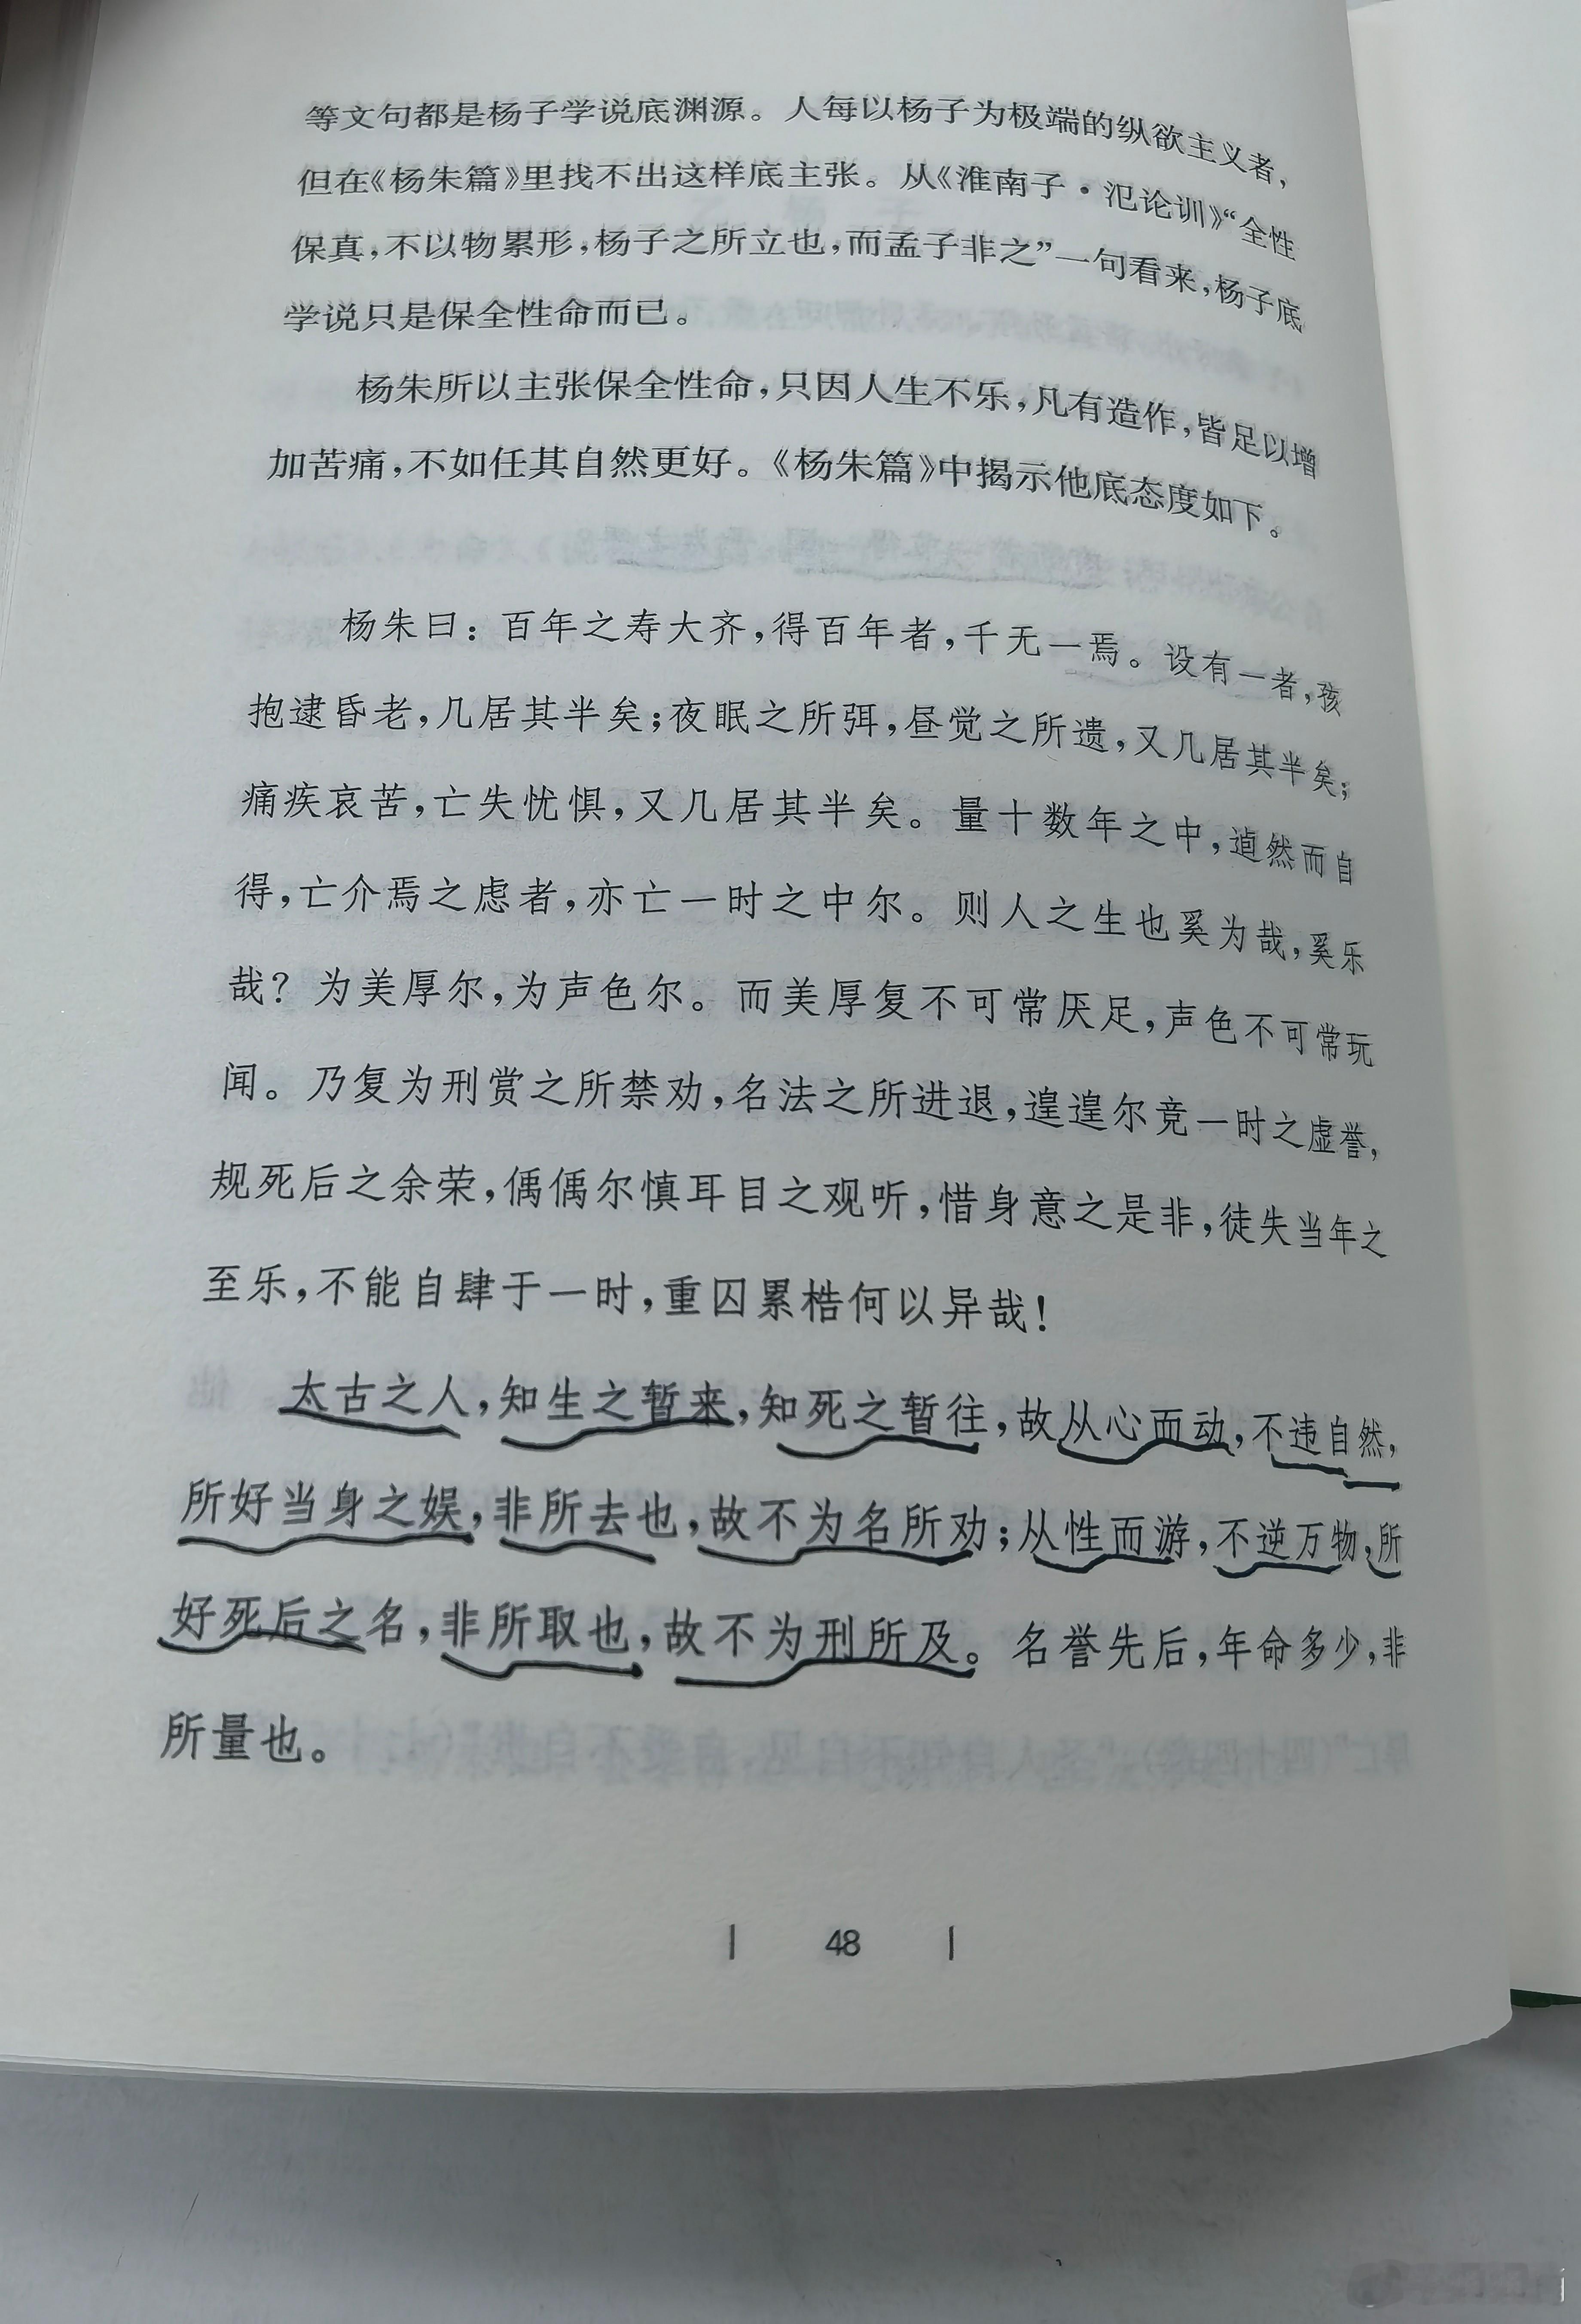 等文句都是杨子学说底渊源。人每以杨子为极端的纵欲主义者，
但在《杨朱篇》里找不出这样底主张。从《淮南子·氾论训》“全性
保真，不以物累形，杨子之所立也，而孟子非之”一句看来，杨子底
学说只是保全性命而已。
杨朱所以主张保全性命，只因人生不乐，凡有造作，皆足以增
加苦痛，不如任其自然更好。《杨朱篇》中揭示他底态度如下。
杨朱曰：百年之寿大齐，得百年者，千无一焉。设有一者，孩
抱逮昏老，几居其半矣；夜眠之所弭，昼觉之所遗，又几居其半矣；
痛疾哀苦，亡失忧惧，又几居其半矣。量十数年之中，逌然而自
得，亡介焉之虑者，亦亡一时之中尔。则人之生也奚为哉，奚乐
哉？为美厚尔，为声色尔。而美厚复不可常厌足，声色不可常玩
闻。乃复为刑赏之所禁劝，名法之所进退，遑遑尔竞一时之虚誉，
规死后之余荣，偊偊尔慎耳目之观听，惜身意之是非，徒失当年之
至乐，不能自肆于一时，重囚累梏何以异哉！
太古之人，知生之暂来，知死之暂往，故从心而动，不违自然，
所好当身之娱，非所去也，故不为名所劝；从性而游，不逆万物，所
好死后之名，非所取也，故不为刑所及。名誉先后，年命多少，非
所量也。
48